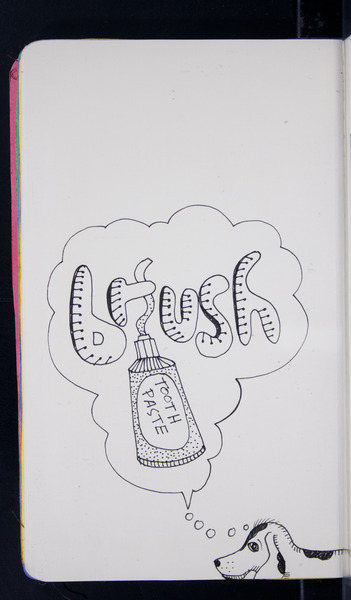 brush
TOOTH
PASTE